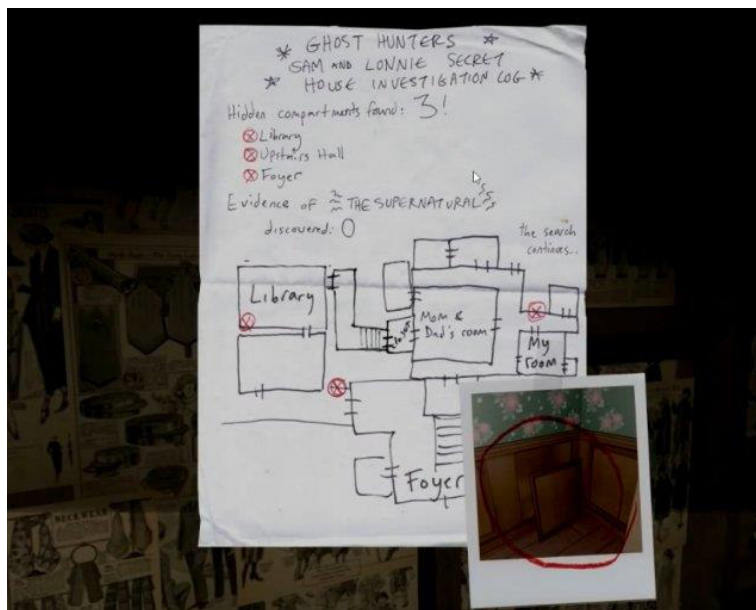 GHOST HUNTERS
SAM AND LONNIE SECRET
HOUSE INVESTIGATION LOG
Hidden compartments found: 3!
Library
Upstairs Hall
Foyer
Evidence of THE SUPERNATURAL
discovered: 0
the search
continues...
Library
Mom &
Dad's room
My
room
Foyer
NECKWEAR